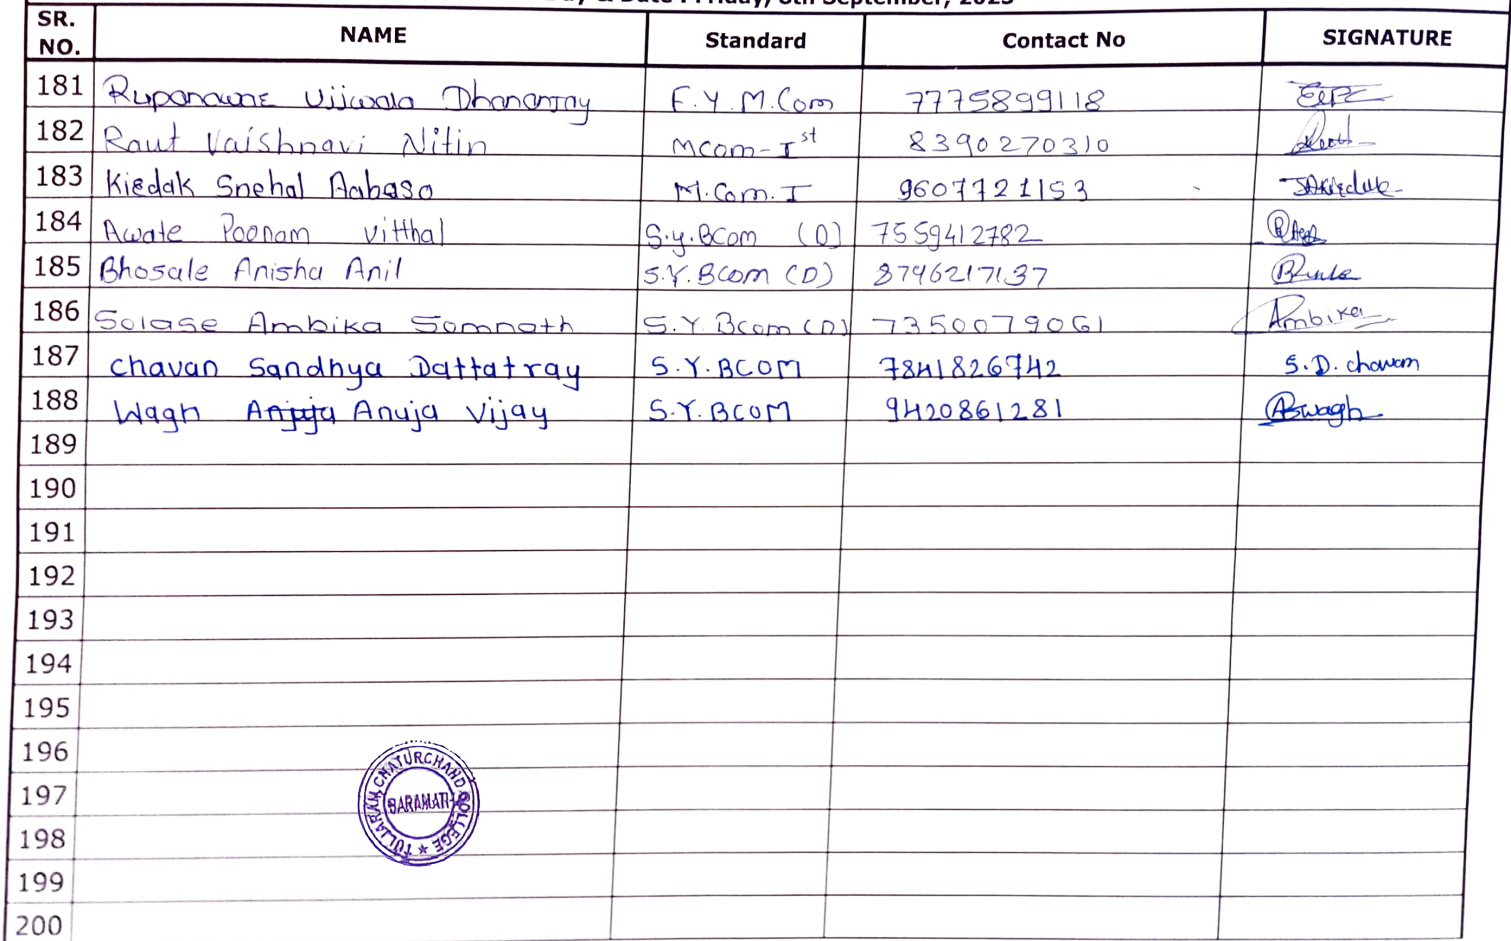 Day & Date : Friday, 8th September, 2023
SR. NO. NAME Standard Contact No SIGNATURE
181 Rupanawne Ujjwala Dhananjay F.Y.M.Com 7775899118
182 Raut Vaishnavi Nitin Mcom-Ist 8390270310
183 Kiedak Snehal Aabaso M.Com.I 9607721153
184 Awate Poonam Vitthal S.y.BCom (D) 7559412782
185 Bhosale Anisha Anil S.Y.BCom (D) 8746217137
186 Solase Ambika Somnath S.Y.Bcom (D) 7350079061 Ambika
187 Chavan Sandhya Dattatray S.Y.BCOM 7841826742 S.D. chavan
188 Wagh Anuja Vijay S.Y.BCOM 9420861281 ASwagh
189
190
191
192
193
194
195
196
197
198
199
200
TULJARAM CHATURCHAND COLLEGE
BARAMATI